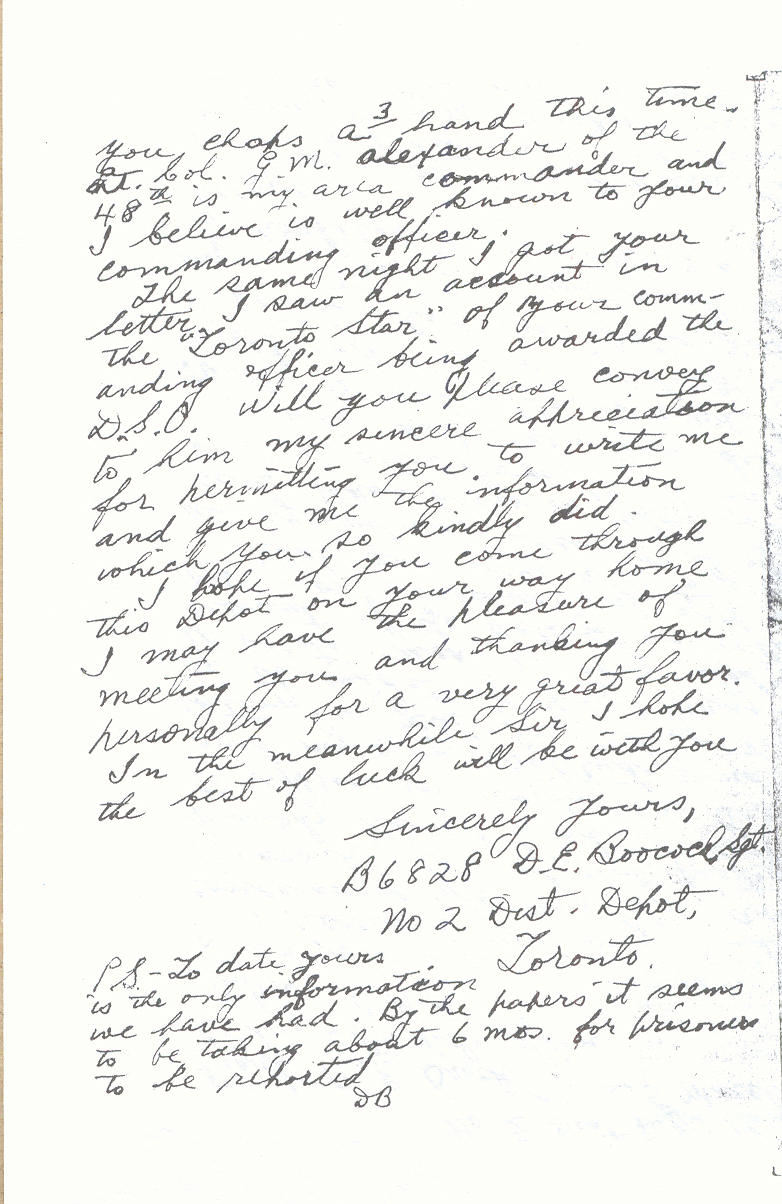 you chaps a hand this time.
Lt. Col. G.M. Alexander of the
48th is my area commander and
I believe is well known to your
commanding officer.
The same night I got your
letter I saw an account in
the "Toronto Star" of your comm-
anding officer being awarded the
D.S.O. Will you please convey
to him my sincere appreciation
for permitting you to write me
and give me the information
which you so kindly did.
I hope if you come through
this Depot on your way home
I may have the pleasure of
meeting you and thanking you
personally for a very great favor.
In the meanwhile Sir I hope
the best of luck will be with you
Sincerely yours,
B6828 D.E. Boocock, Sgt.
No 2 Dist. Depot,
Toronto.
P.S. - To date yours
is the only information
we have had. By the papers it seems
to be taking about 6 mos. for prisoners
to be reported
DB